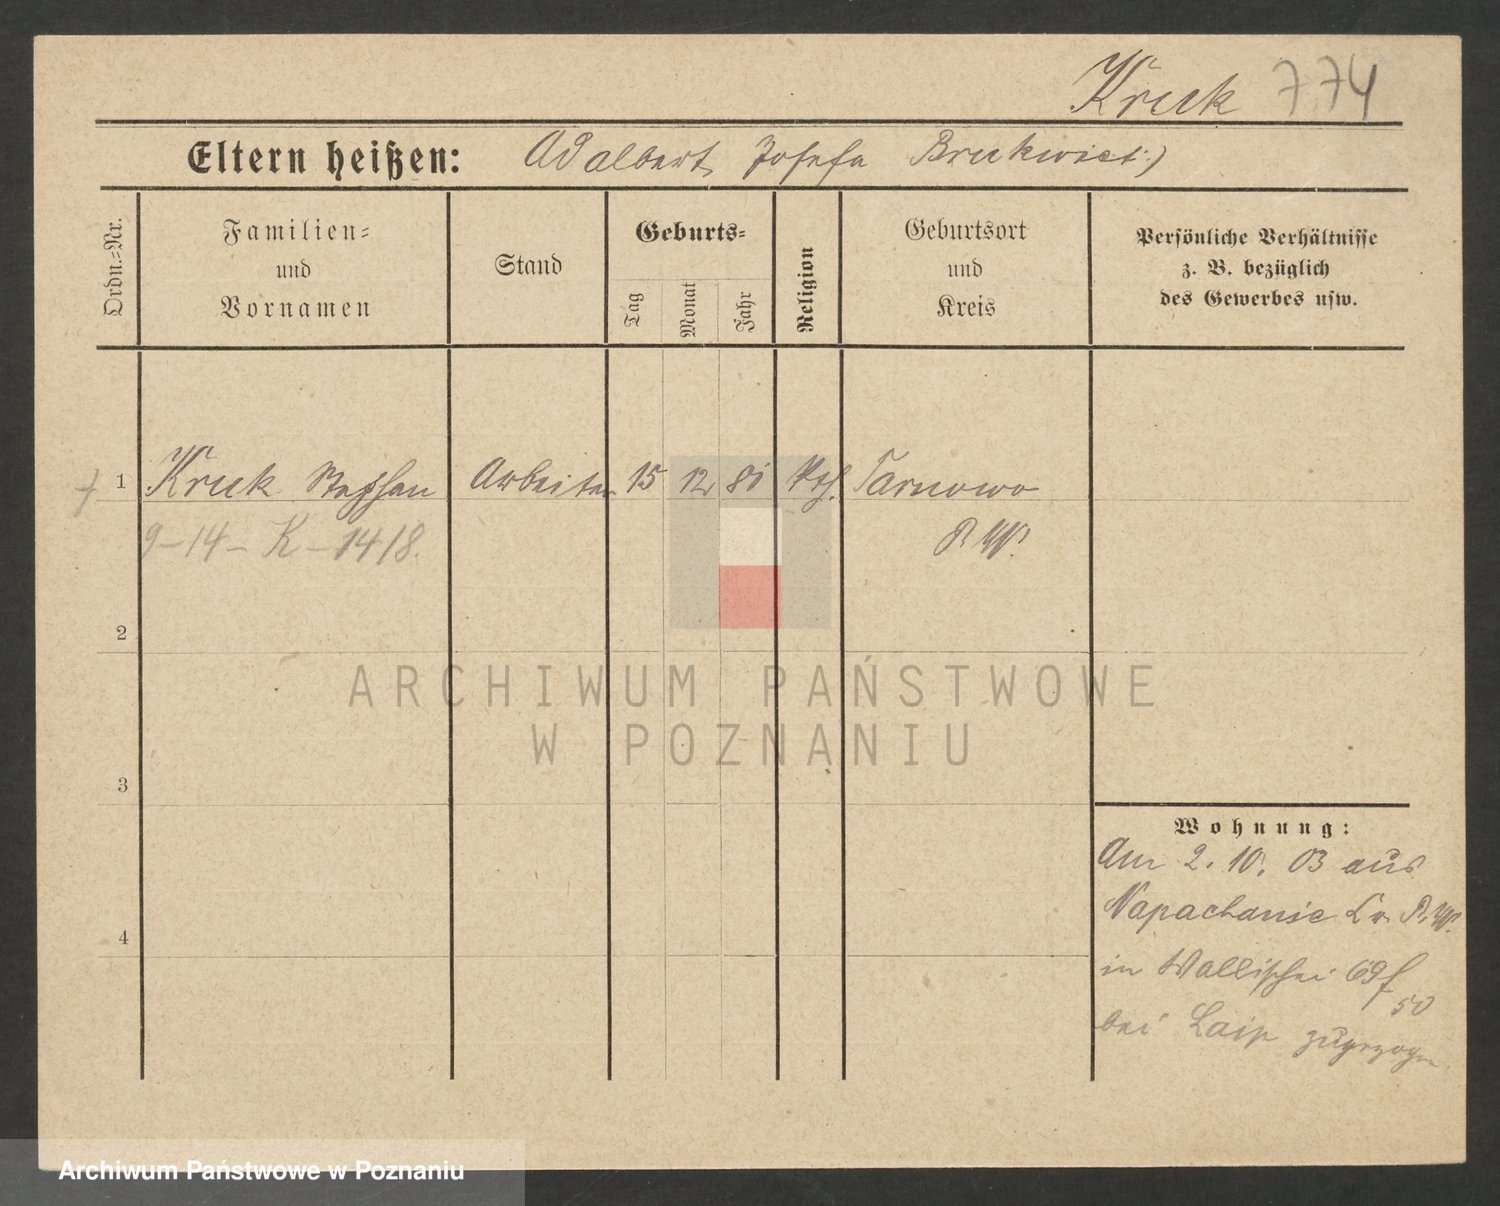 Kruk 774
Eltern heißen: Adalbert Josefa
Ordn.-Nr.
Familien-
und
Vornamen
Stand
Geburts-
Tag
Monat
Jahr
Religion
Geburtsort
und
Kreis
Persönliche Verhältnisse
z. B. bezüglich
des Gewerbes usw.
1 Kruk Stephan Arbeiter 15 12 81 Kth. Tarnowo
9-14-K-1418. P. W.
2
ARCHIWUM PAŃSTWOWE
W POZNANIU
3
Wohnung:
Am 2. 10. 03 aus
Napachanie Kr. P. W.
in Wallischei 69f
50
bei zugezogen
4
Archiwum Państwowe w Poznaniu